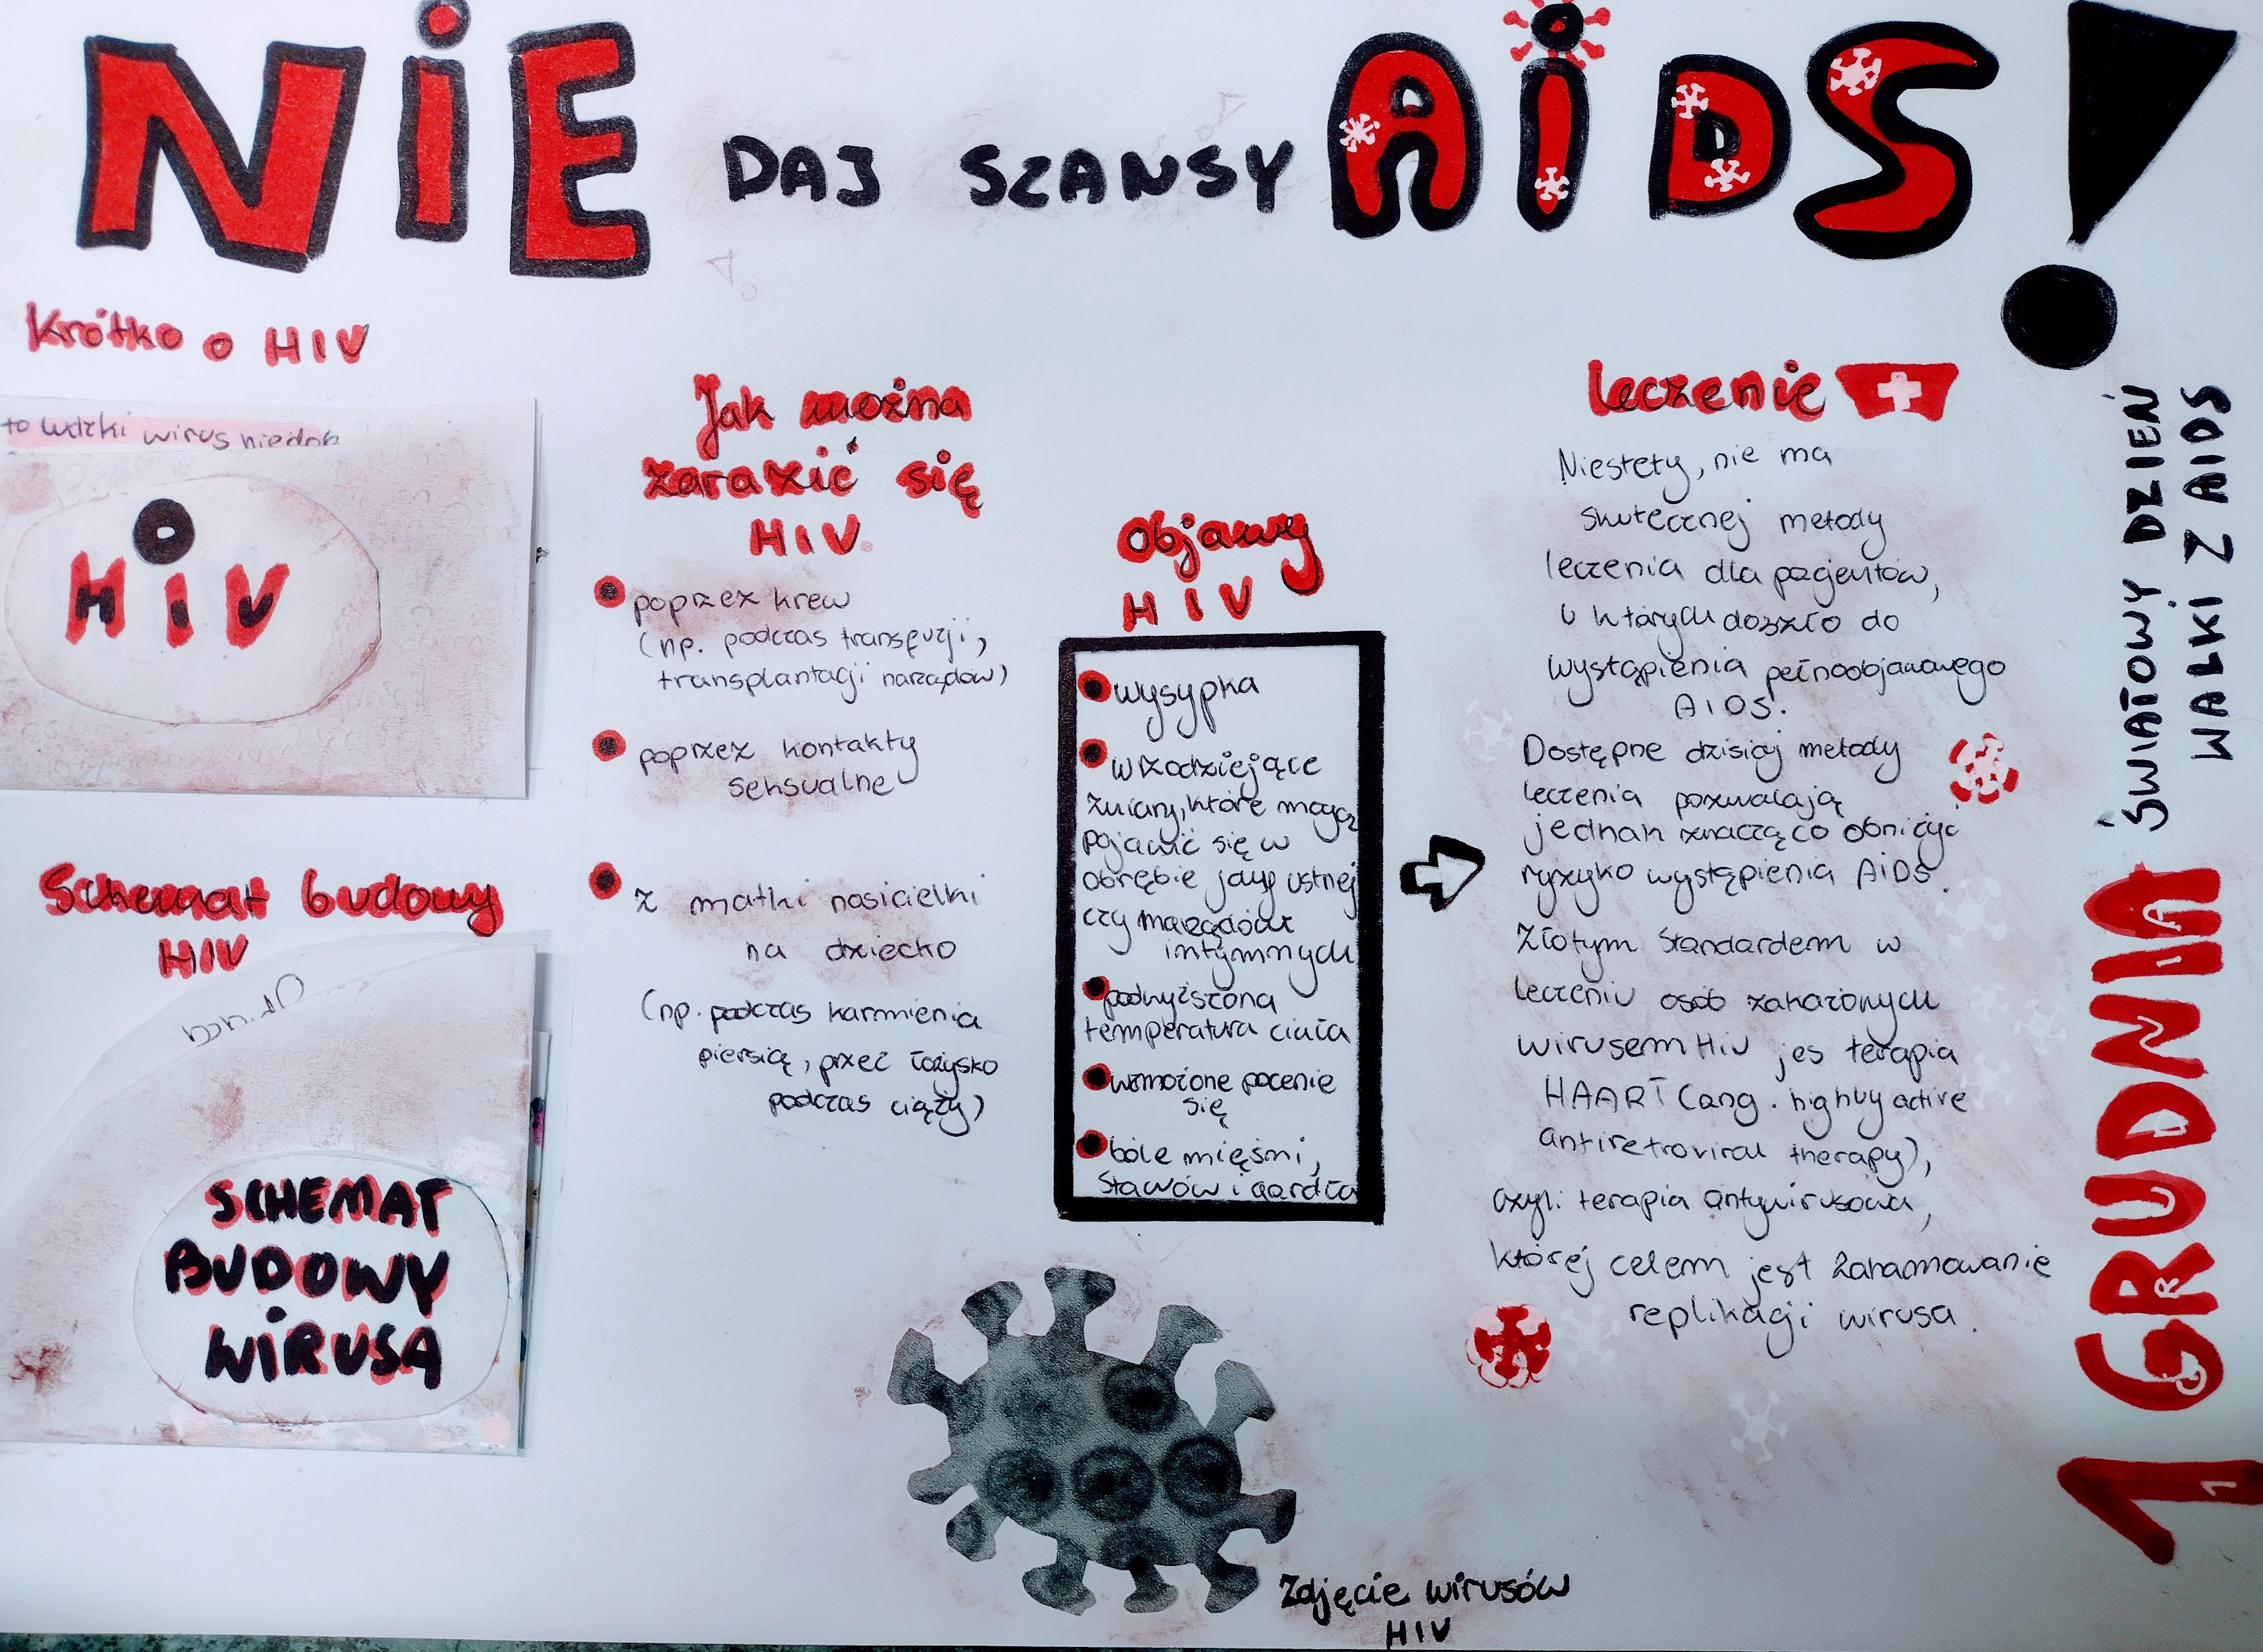 NiE DAJ SZANSY AiDS!
Krótko o HIV
to ludzki wirus niedob
HiV
Schemat budowy
HIV
SCHEMAT
BUDOWY
WiRUSA
Jak można
zarazić się
HIV
poprzez krew
(np. podczas transfuzji,
transplantacji narządów)
poprzez kontakty
seksualne
z matki nosicielki
na dziecko
(np. podczas karmienia
piersią, przeć łożysko
podczas ciąży)
Objawy
HIV
wysypka
wrzodziejące
zmiany, które mogą
pojawić się w
obrębie jamy ustnej
czy narządów
intymnych
podwyższona
temperatura ciała
wzmożone pocenie
się
bóle mięśni,
stawów i gardła
Zdjęcie wirusów
HIV
leczenie
Niestety, nie ma
skutecznej metody
leczenia dla pacjentów,
u których doszło do
wystąpienia pełnoobjawowego
AIDS.
Dostępne dzisiaj metody
leczenia pozwalają
jednak znacząco obniżyć
ryzyko wystąpienia AiDS.
Złotym standardem w
leczeniu osób zakażonych
wirusem HiV jes terapia
HAART (ang. highly active
antiretroviral therapy),
czyli terapia antywirusowa,
której celem jest zahamowanie
replikacji wirusa.
1 GRUDNIA ŚWIATOWY DZIEŃ
WALKI Z AIDS